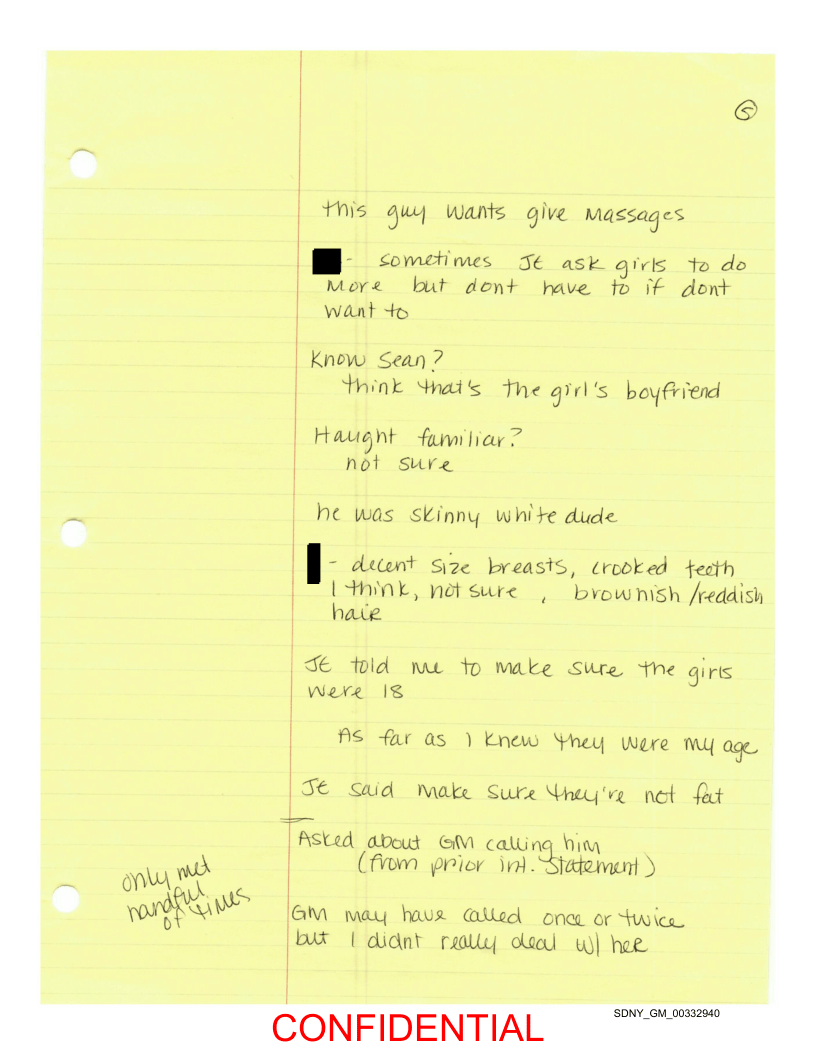 5
this guy wants give massages
- sometimes JE ask girls to do
more but dont have to if dont
want to
Know Sean?
think that's the girl's boyfriend
Haught familiar?
not sure
he was skinny white dude
- decent size breasts, crooked teeth
I think, not sure , brownish/reddish
hair
JE told me to make sure the girls
were 18
As far as I knew they were my age
JE said make sure they're not fat
Asked about GM calling him
(from prior int. statement)
only met
handful
of times
GM may have called once or twice
but I didnt really deal w/ her
SDNY_GM_00332940
CONFIDENTIAL